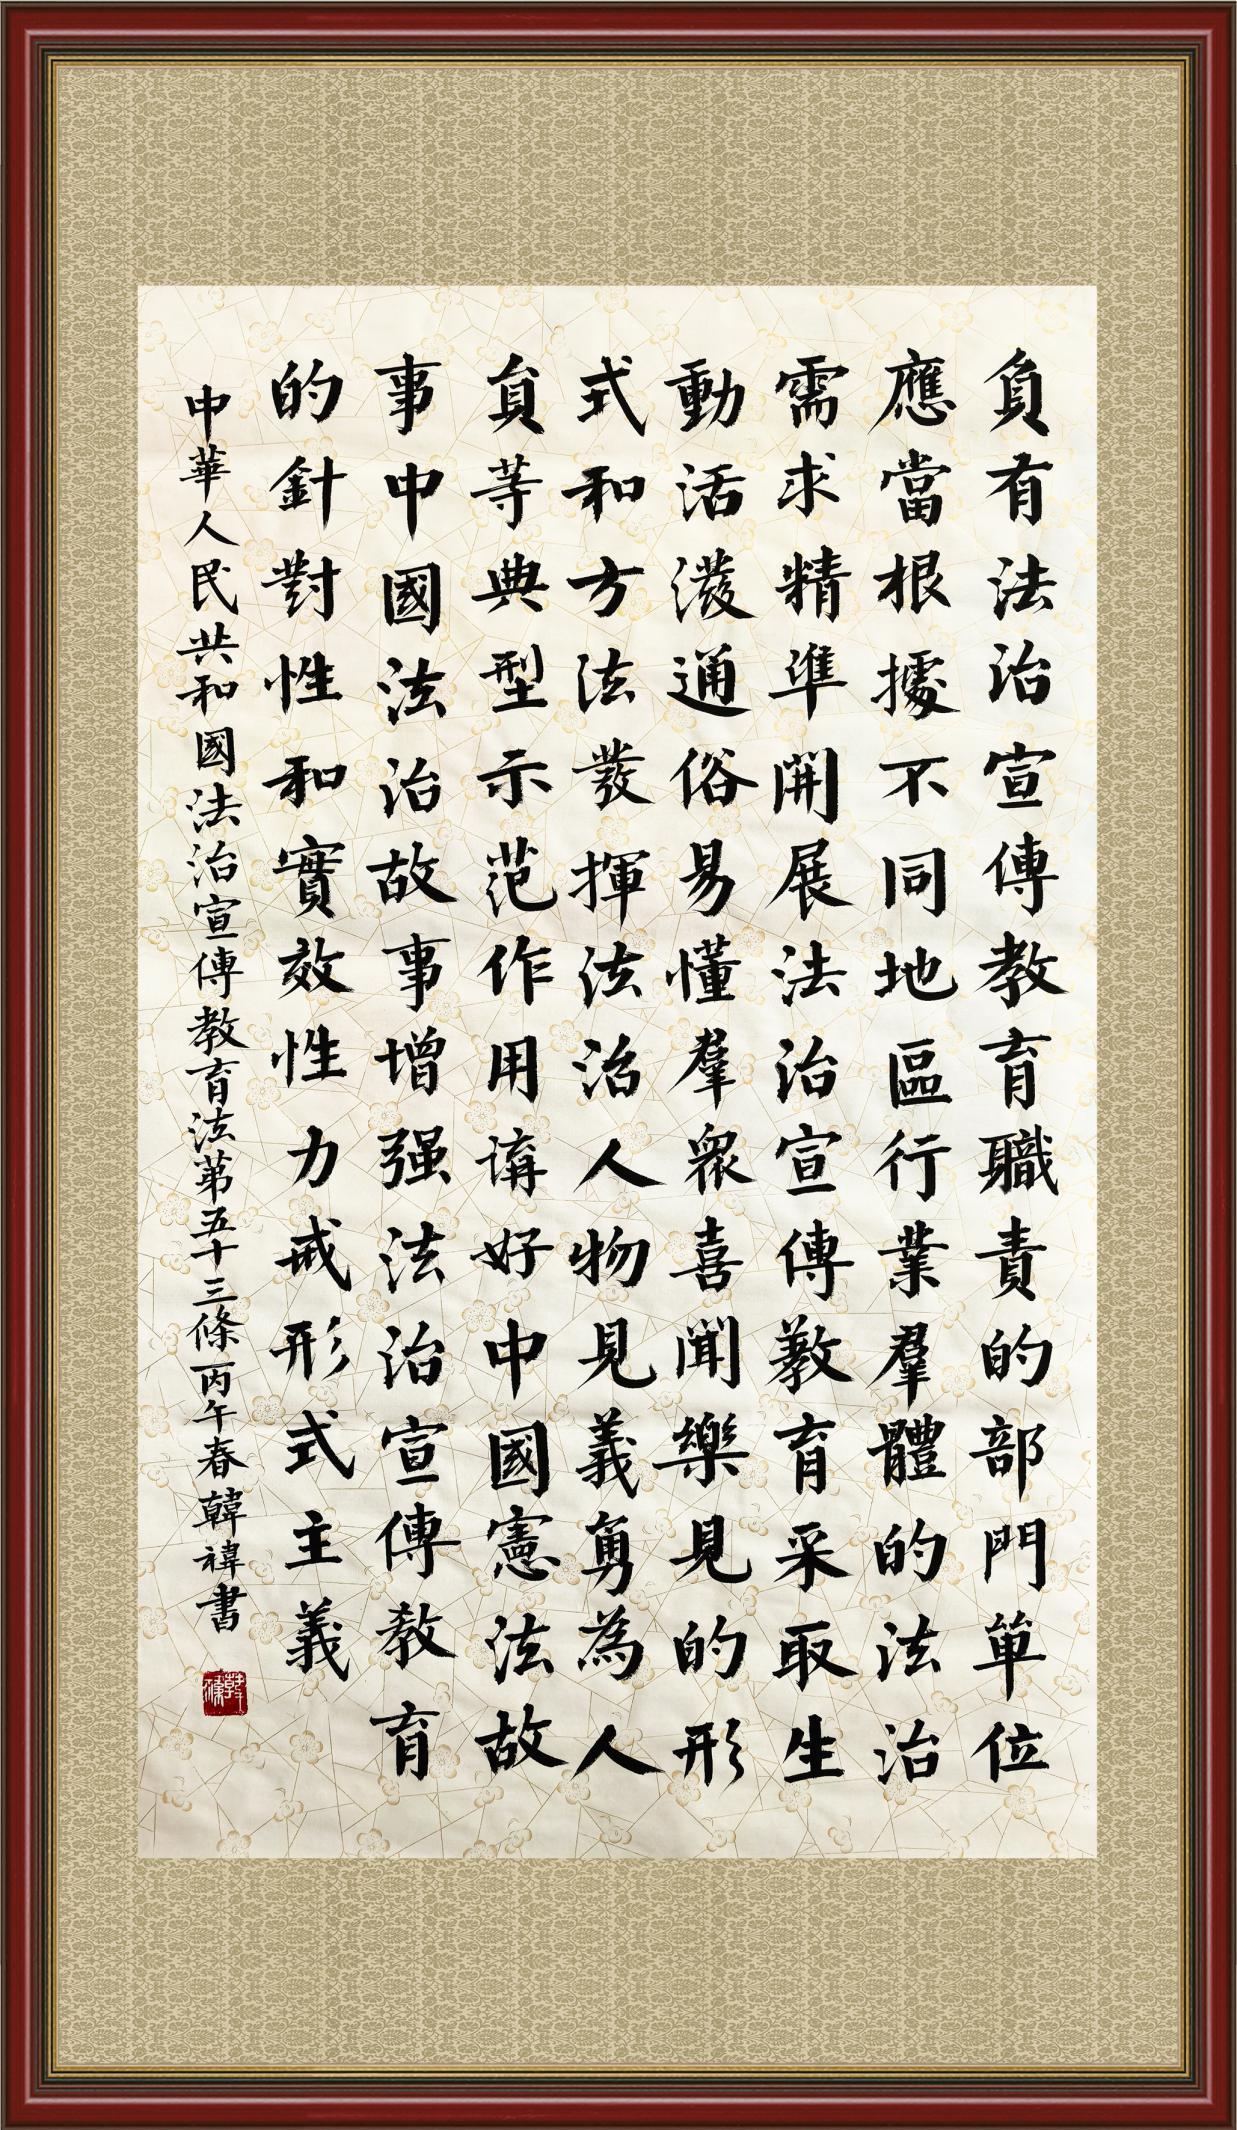 負有法治宣傳教育職責的部門單位
應當根據不同地區行業羣體的法治
需求精準開展法治宣傳教育采取生
動活潑通俗易懂羣衆喜聞樂見的形
式和方法發揮法治人物見義勇為人
員等典型示范作用講好中國憲法故
事中國法治故事增强法治宣傳教育
的針對性和實效性力戒形式主義
中華人民共和國法治宣傳教育法第五十三條丙午春韓禕書